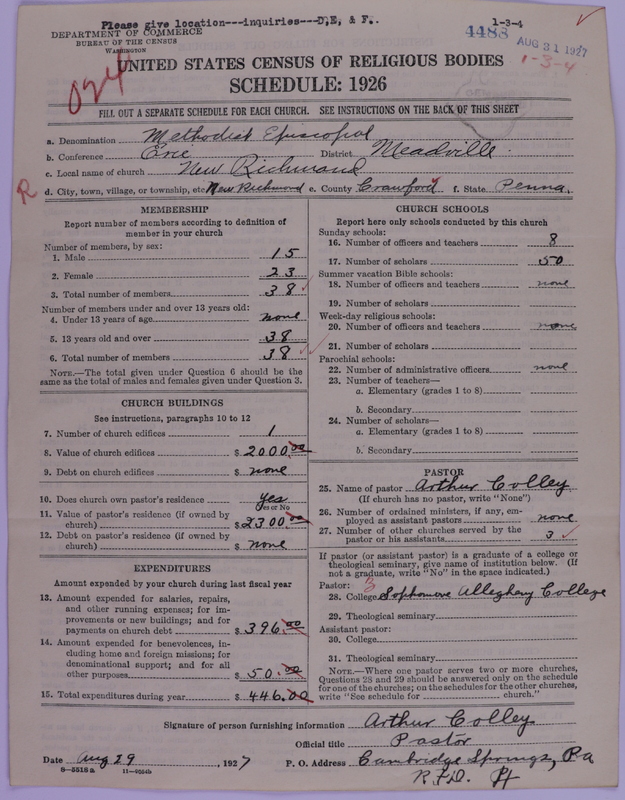 Please give location---inquiries---D,E, & F..
1-3-4
DEPARTMENT OF COMMERCE
BUREAU OF THE CENSUS
WASHINGTON
4488
AUG 31 1927
1-3-4
024
UNITED STATES CENSUS OF RELIGIOUS BODIES
SCHEDULE: 1926
FILL OUT A SEPARATE SCHEDULE FOR EACH CHURCH. SEE INSTRUCTIONS ON THE BACK OF THIS SHEET
a. Denomination Methodist Episcopal
b. Conference Erie District Meadville
c. Local name of church New Richmond
R
d. City, town, village, or township, etc New Richmond e. County Crawford f. State Penna.
MEMBERSHIP
Report number of members according to definition of
member in your church
Number of members, by sex:
1. Male 15
2. Female 23
3. Total number of members 38
Number of members under and over 13 years old:
4. Under 13 years of age none
5. 13 years old and over 38
6. Total number of members 38
NOTE.—The total given under Question 6 should be
same as the total of males and females given under Question 3.
CHURCH BUILDINGS
See instructions, paragraphs 10 to 12
7. Number of church edifices 1
8. Value of church edifices $ 2000.00
9. Debt on church edifices $ none
10. Does church own pastor's residence yes
Yes or No
11. Value of pastor's residence (if owned by
church) $ 2300.00
12. Debt on pastor's residence (if owned by
church) $ none
EXPENDITURES
Amount expended by your church during last fiscal year
13. Amount expended for salaries, repairs,
and other running expenses; for im-
provements or new buildings; and for
payments on church debt $ 396.00
14. Amount expended for benevolences, in-
cluding home and foreign missions; for
denominational support; and for all
other purposes $ 50.00
15. Total expenditures during year $ 446.00
CHURCH SCHOOLS
Report here only schools conducted by this church
Sunday schools:
16. Number of officers and teachers 8
17. Number of scholars 50
Summer vacation Bible schools:
18. Number of officers and teachers none
19. Number of scholars
Week-day religious schools:
20. Number of officers and teachers none
21. Number of scholars
Parochial schools:
22. Number of administrative officers none
23. Number of teachers—
a. Elementary (grades 1 to 8)
b. Secondary
24. Number of scholars—
a. Elementary (grades 1 to 8)
b. Secondary
PASTOR
25. Name of pastor Arthur Colley
(If church has no pastor, write "None")
26. Number of ordained ministers, if any, em-
ployed as assistant pastors none
27. Number of other churches served by the
pastor or his assistants 3
If pastor (or assistant pastor) is a graduate of a college or
theological seminary, give name of institution below. (If
not a graduate, write "No" in the space indicated.)
Pastor: 3
28. College Sophomore Allegheny College
29. Theological seminary
Assistant pastor:
30. College
31. Theological seminary
NOTE.—Where one pastor serves two or more churches,
Questions 28 and 29 should be answered only on the schedule
for one of the churches; on the schedules for the other churches,
write "See schedule for church."
Signature of person furnishing information Arthur Colley
Official title Pastor
Date Aug 29, 1927 P. O. Address Cambridge Springs, Pa
8-5518 a 11-9504b
R.F.D.